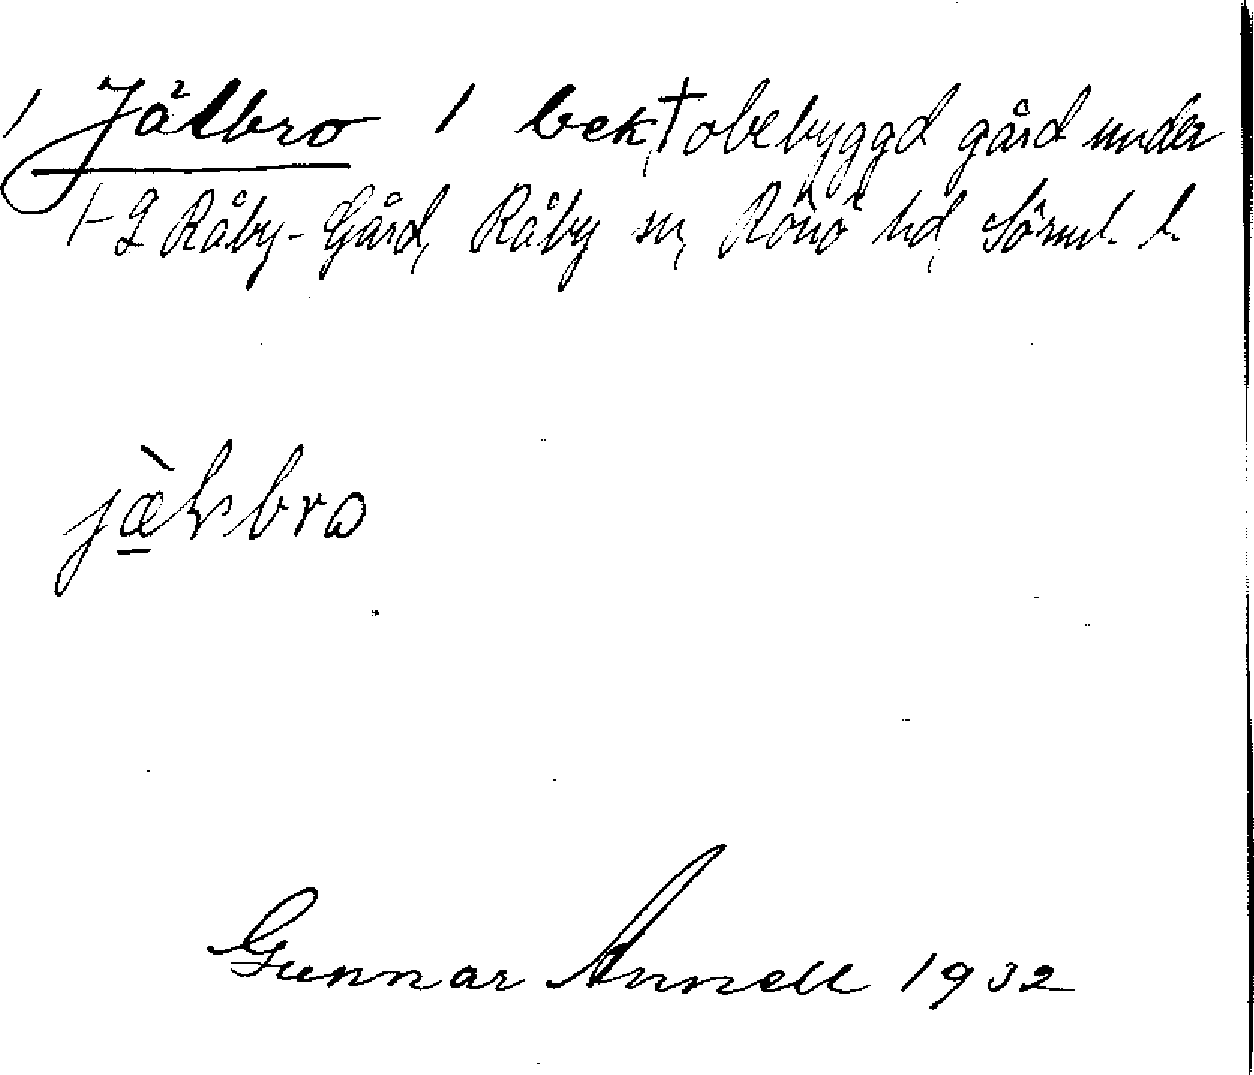 / Jälbro / bek, † obebyggd gård under
1-2 Råby-Gård, Råby sn, Rönö hd, Sörml. l.
Gunnar Annell 1932